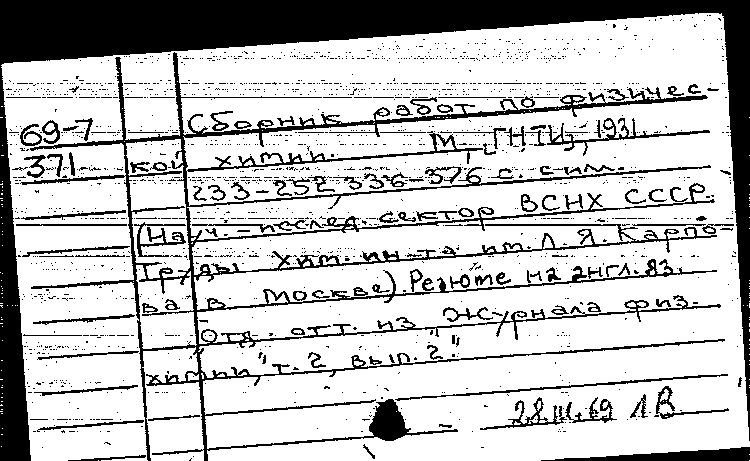 69-7
371
Сборник работ по физичес-
кой химии. М., [ГНТИ], 1931.
233-252, 336-376 с. с илл.
(Науч.-исслед. сектор ВСНХ СССР.
Труды Хим. ин-та им. Л. Я. Карпо-
ва в Москве). Резюме на англ. яз.
Отд. отт. из "Журнала физ.
химии," т. 2, вып. 2."
28.III.69 1В